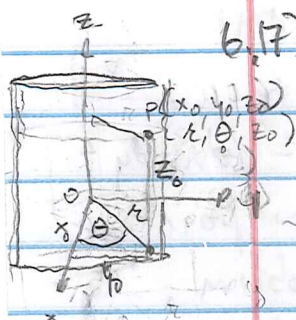 z
6.17
P(x₀, y₀, z₀)
(r, θ, z₀)
z₀
O
r
x₀
θ
y₀